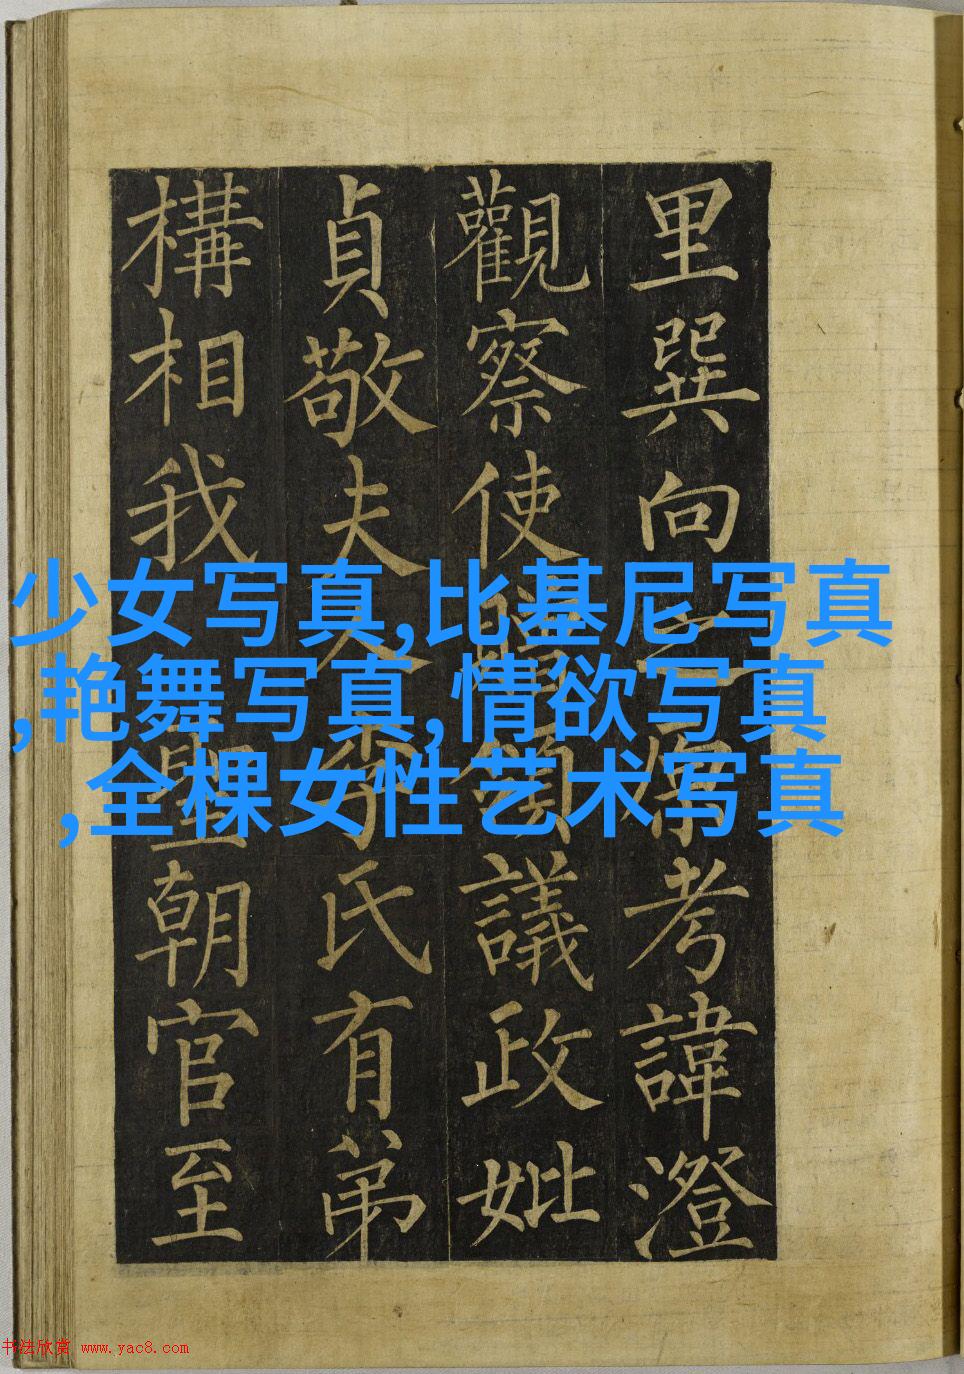 里巽向之原考諱澄
觀察使贈領議政妣
貞敬夫人李氏有弟
構相我聖朝官至
少女写真,比基尼写真
,艳舞写真,情欲写真
,全棵女性艺术写真
书法欣赏 www.yac8.com